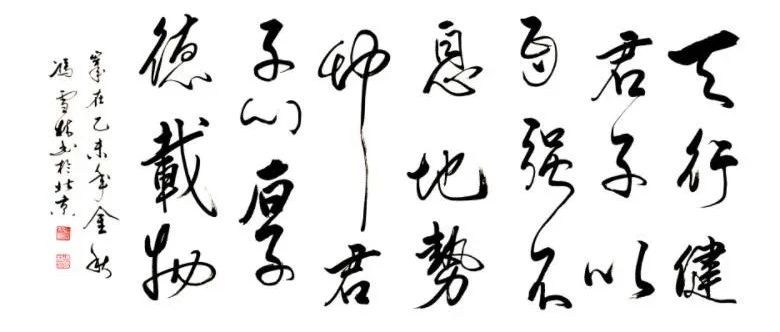 天行健
君子以
自强不
息地勢
坤君
子以厚
德載物
歲在乙未年金秋
冯雪书於北京